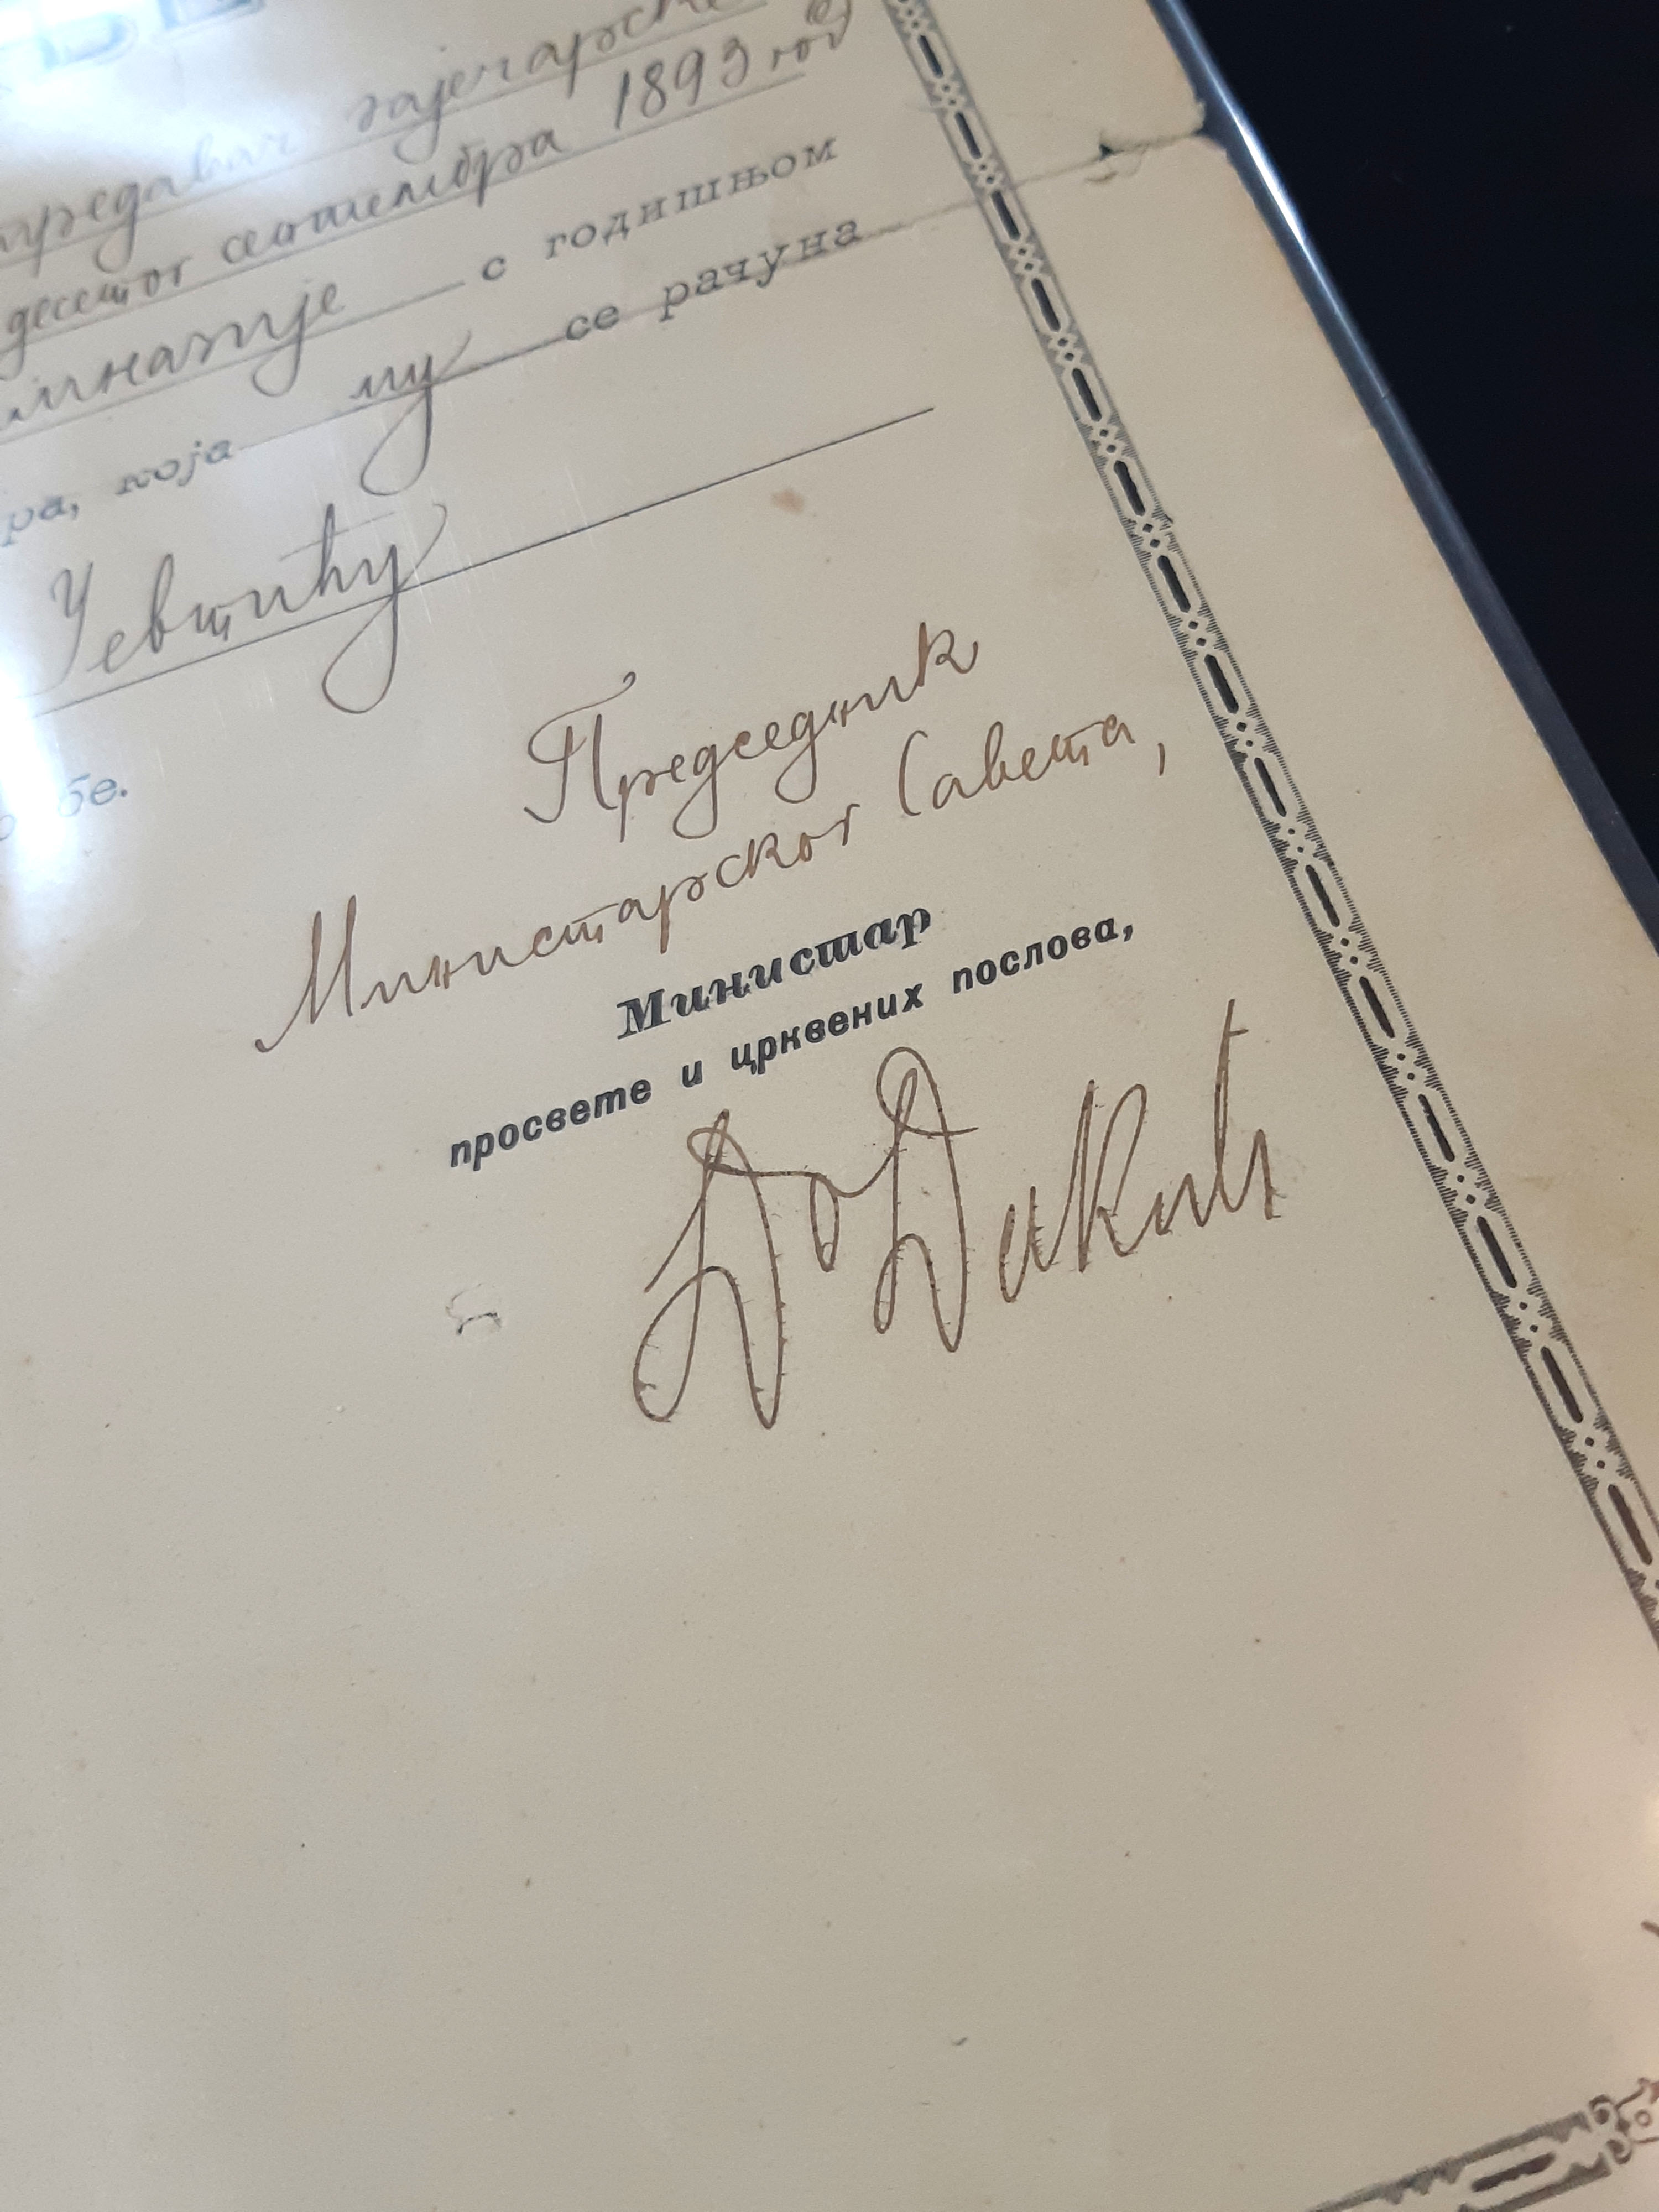 предавач зајечарске
десетог септембра 1893 год
имназије с годишњом
ра, која му се рачуна
Јевтићу
бе.
Председник
Министарског Савета,
Министар
просвете и црквених послова,
Др Л Докић